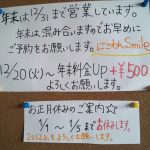 年末は12/31まで営業しています。
年末は混み合いますのでお早めに
ご予約をお願いします。にこわんSmile
12/20(火)〜年末料金UP +¥500
よろしくお願いします。
お正月休みのご案内☆
1/1〜1/5までお休みします。
2012年もよろしくお願いします